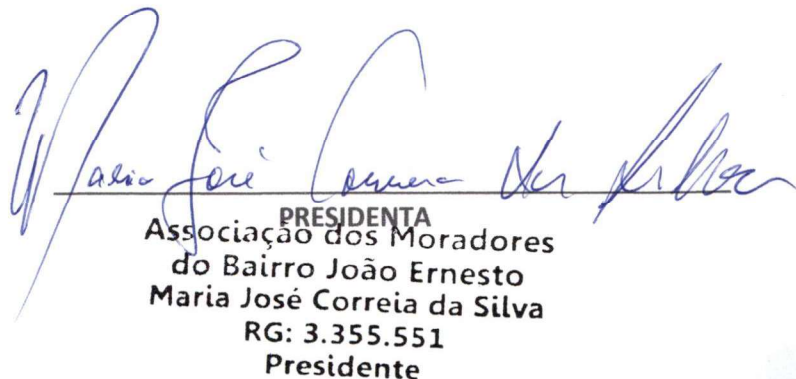 Maria José Correia da Silva
PRESIDENTA
Associação dos Moradores
do Bairro João Ernesto
Maria José Correia da Silva
RG: 3.355.551
Presidente